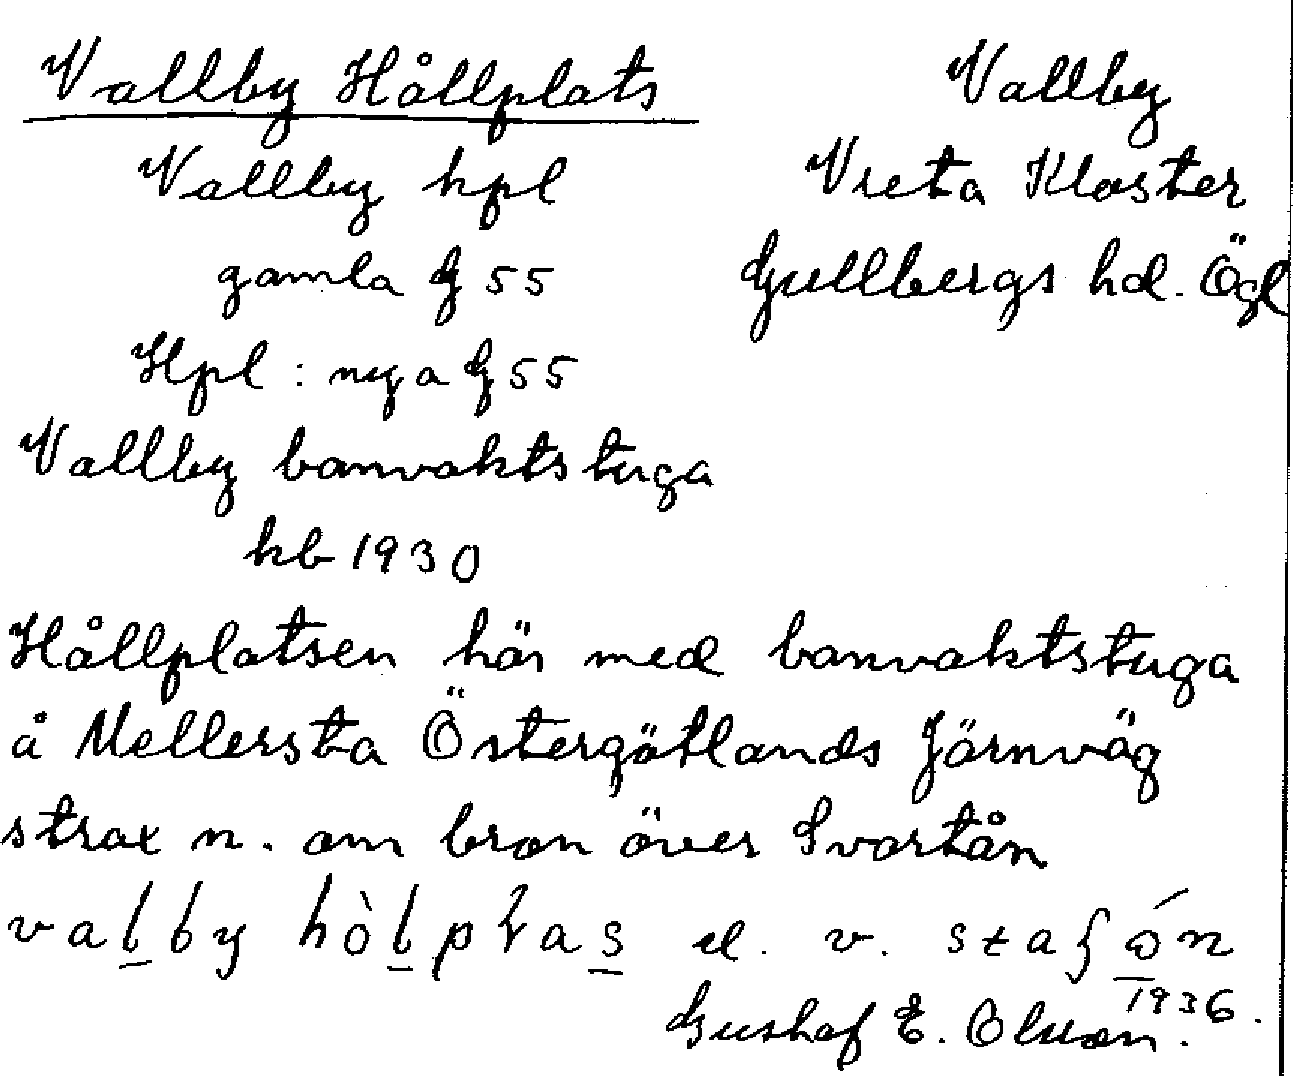 Vallby Hållplats
Vallby
Vallby hpl
Vreta Kloster
gamla G 55
Gullbergs hd. Ögl
Hpl : nya G 55
Vallby banvaktstuga
hb 1930
Hållplatsen här med banvaktstuga
å Mellersta Östergötlands Järnväg
strax n. om bron över Svartån
valby hòlplas el. v. staʃón
1936.
Gustaf E. Olsson.